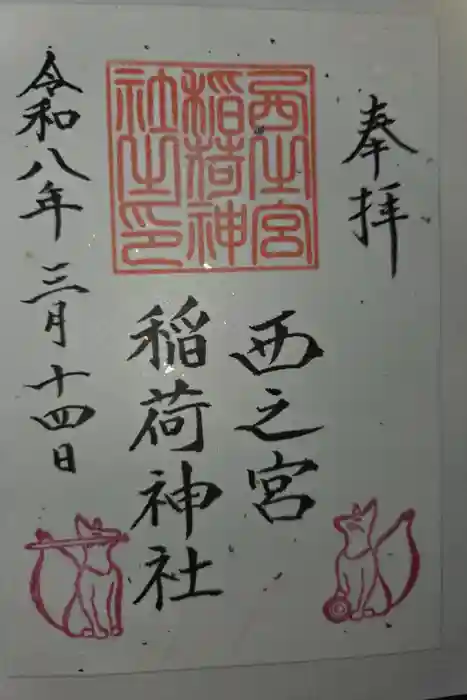 奉拝
西之宮
稲荷神社
令和八年三月十四日
西之宮
稲荷神
社之印